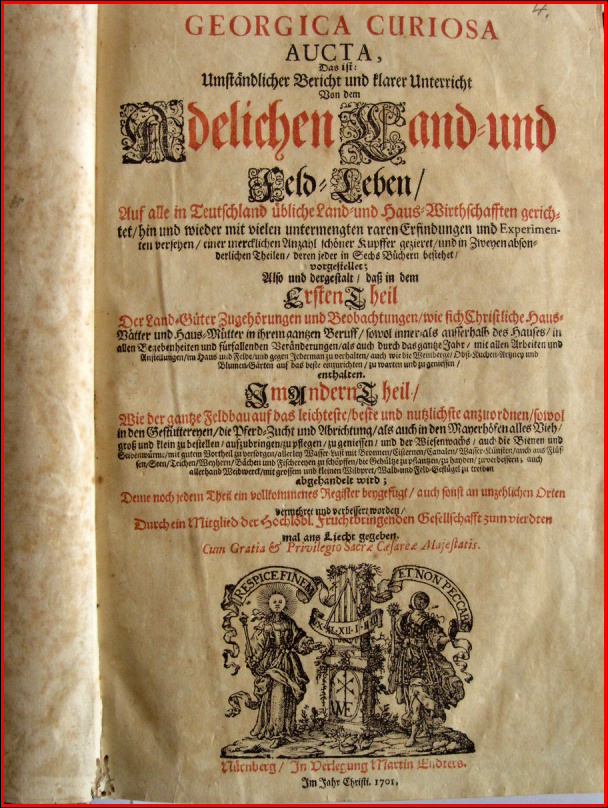 4.
GEORGICA CURIOSA
AUCTA,
Das ist:
Umständlicher Bericht und klarer Unterricht
Von dem
Adelichen Land- und
Feld-Leben/
Auf alle in Teutschland übliche Land- und Haus-Wirthschafften gerich-
tet/ hin und wieder mit vielen untermengten raren Erfindungen und Experimen-
ten versehen/ einer mercklichen Anzahl schöner Kupffer gezieret/ und in Zweyen abson-
derlichen Theilen/ deren jeder in Sechs Büchern bestehet/
vorgestellet;
Also und dergestalt/ daß in dem
Ersten Theil
Der Land-Güter Zugehörungen und Beobachtungen/ wie sich Christliche Haus-
Vätter und Haus-Mütter in ihrem gantzen Beruff/ sowol inner- als ausserhalb des Hauses/ in
allen Begebenheiten und fürfallenden Veränderungen/ als auch durch das gantze Jahr/ mit allen Arbeiten und
Anstellungen/ im Haus und Felde/ und gegen Jederman zu verhalten/ auch wie die Weinberge/ Obst- Kuchen- Artzney und
Blumen-Gärten auf das beste einzurichten/ zu warten und zu geniessen/
enthalten.
Im Andern Theil/
Wie der gantze Feldbau auf das leichteste/ beste und nutzlichste anzuordnen/ sowol
in den Gestüttereyen/ die Pferd-Zucht und Abrichtung/ als auch in den Mayerhöfen alles Vieh/
groß und klein zu bestellen/ aufzubringen/ zu pflegen/ zu geniessen/ und der Wiesenwachs/ auch die Bienen und
Seidenwürme/ mit gutem Vortheil zu versorgen/ allerley Wasser-Lust mit Bronnen/ Cisternen/ Canalen/ Wasser-Künsten/ auch aus Flüs-
sen/ Seen/ Teichen/ Weyhern/ Bächen und Fischereyen zu schöpffen/ die Gehültze zu pflantzen/ zu hayden/ zu verbessern; auch
allerhand Weidwerck/ mit grossem und kleinen Wildpret/ Wald- und Feld-Geflügel zu treiben
abgehandelt wird;
Deme noch jedem Theil ein vollkommenes Register beygefügt/ auch sonst an unzehlichen Orten
vermehret und verbessert worden/
Durch ein Mitglied der Hochlöbl. Fruchtbringenden Gesellschafft zum vierdten
mal ans Liecht gegeben.
Cum Gratia & Privilegio Sacræ Cæsareæ Majestatis.
RESPICE FINEM
ET NON PECCA
Nürnberg/ In Verlegung Martin Endters.
Im Jahr Christi. 1701.